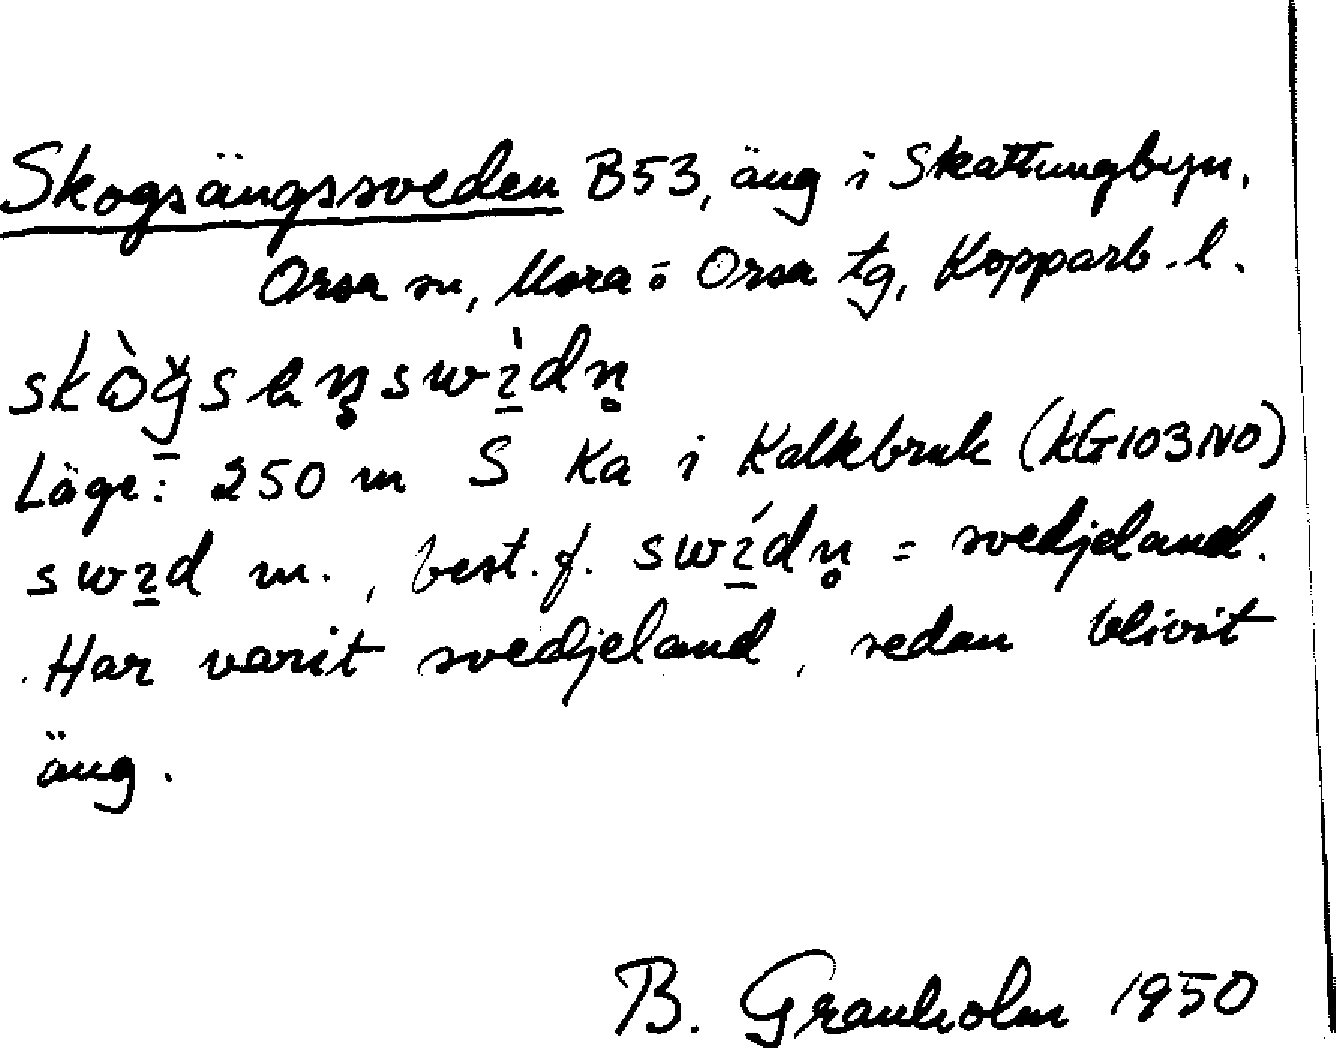 Skogsängssveden B53, äng i Skattungbyn,
Orsa sn, Mora o Orsa tg, Kopparb. l.
skὼǧ̱sεŋ̥swı̱̀dn̥
Läge: 250 m S Ka i Kalkbruk (KG103NO)
swı̱d m., best. f. swı̱́dn̥ = svedjeland.
Har varit svedjeland, sedan blivit
äng.
B. Granholm 1950